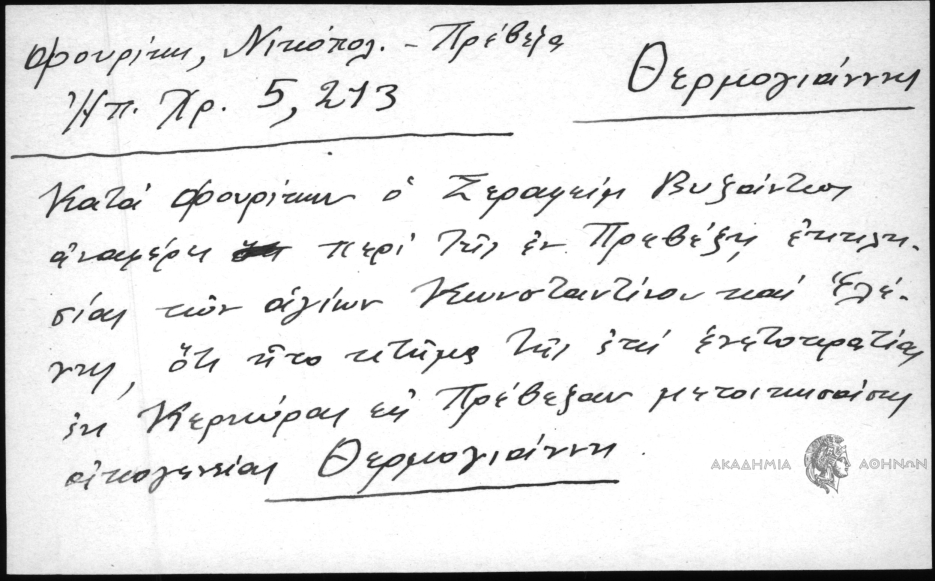 Φουρίκη, Νικόπολ. - Πρέβεζα
Θερμογιάννη
Ἠπ. Χρ. 5, 213
Κατά Φουρίκην ὁ Σεραφείμ Βυζάντιος
ἀναφέρει περί τῆς ἐν Πρεβέζῃ ἐκκλη-
σίας τῶν ἁγίων Κωνσταντίνου καί Ἑλέ-
νης, ὅτι ἦτο κτῆμα τῆς ἐπί ἑνετοκρατίας
ἐκ Κερκύρας εἰς Πρέβεζαν μετοικησάσης
οἰκογενείας Θερμογιάννη.
ΑΚΑΔΗΜΙΑ ΑΘΗΝΩΝ